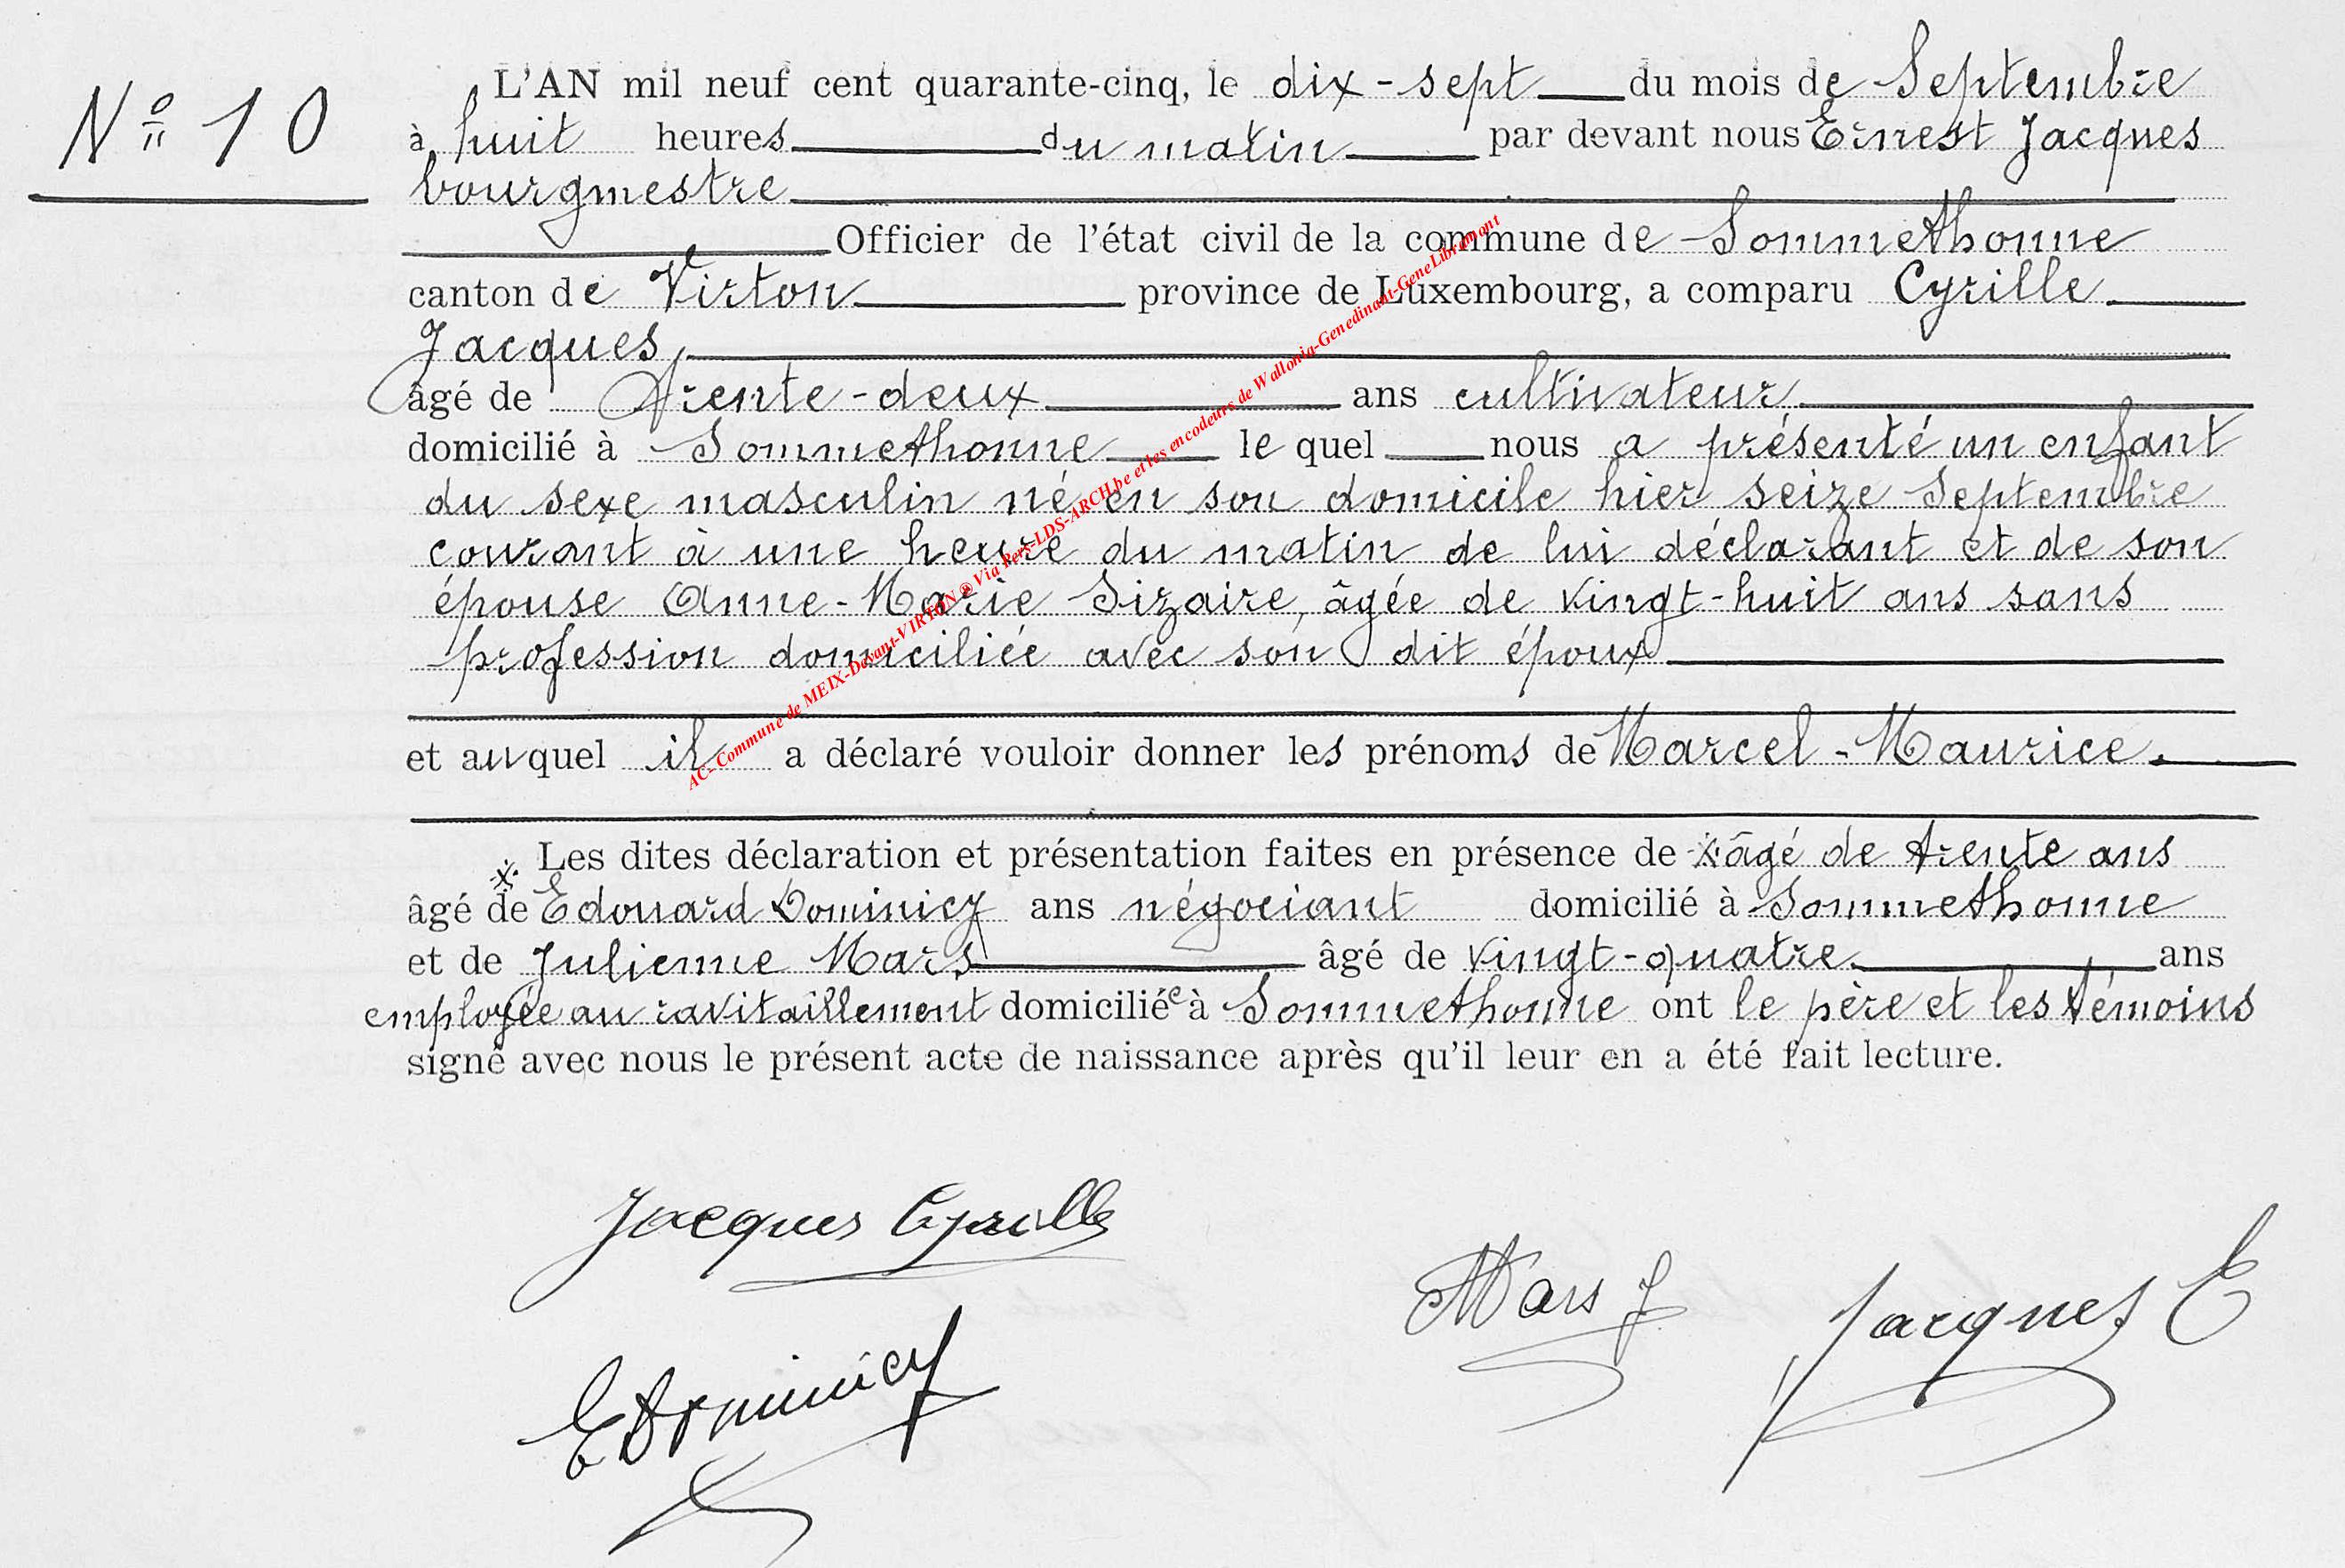 N° 10
L'AN mil neuf cent quarante-cinq, le dix-sept du mois de Septembre
à huit heures du matin par devant nous Ernest Jacques
bourgmestre
Officier de l'état civil de la commune de Sommethonne
canton de Virton province de Luxembourg, a comparu Cyrille
Jacques,
âgé de trente-deux ans cultivateur
domicilié à Sommethonne le quel nous a présenté un enfant
du sexe masculin né en son domicile hier seize Septembre
courant à une heure du matin de lui déclarant et de son
épouse Anne-Marie Sizaire, âgée de vingt-huit ans sans
profession domiciliée avec son dit époux
et auquel il a déclaré vouloir donner les prénoms de Marcel-Maurice.
Les dites déclaration et présentation faites en présence de x âgé de trente ans
x
âgé de Edouard Dominicy ans négociant domicilié à Sommethonne
et de Julienne Mars âgé de vingt-quatre ans
employée au ravitaillement domiciliée à Sommethonne ont le père et les témoins
signé avec nous le présent acte de naissance après qu'il leur en a été fait lecture.
Jacques Cyrille
Mars J
Jacques E
E Dominicy
AC-Commune de MEIX-Devant-VIRTON @ Via Pers-LDS-ARCH.be et les encodeurs de Wallonia-Genedinant-GeneLibramont